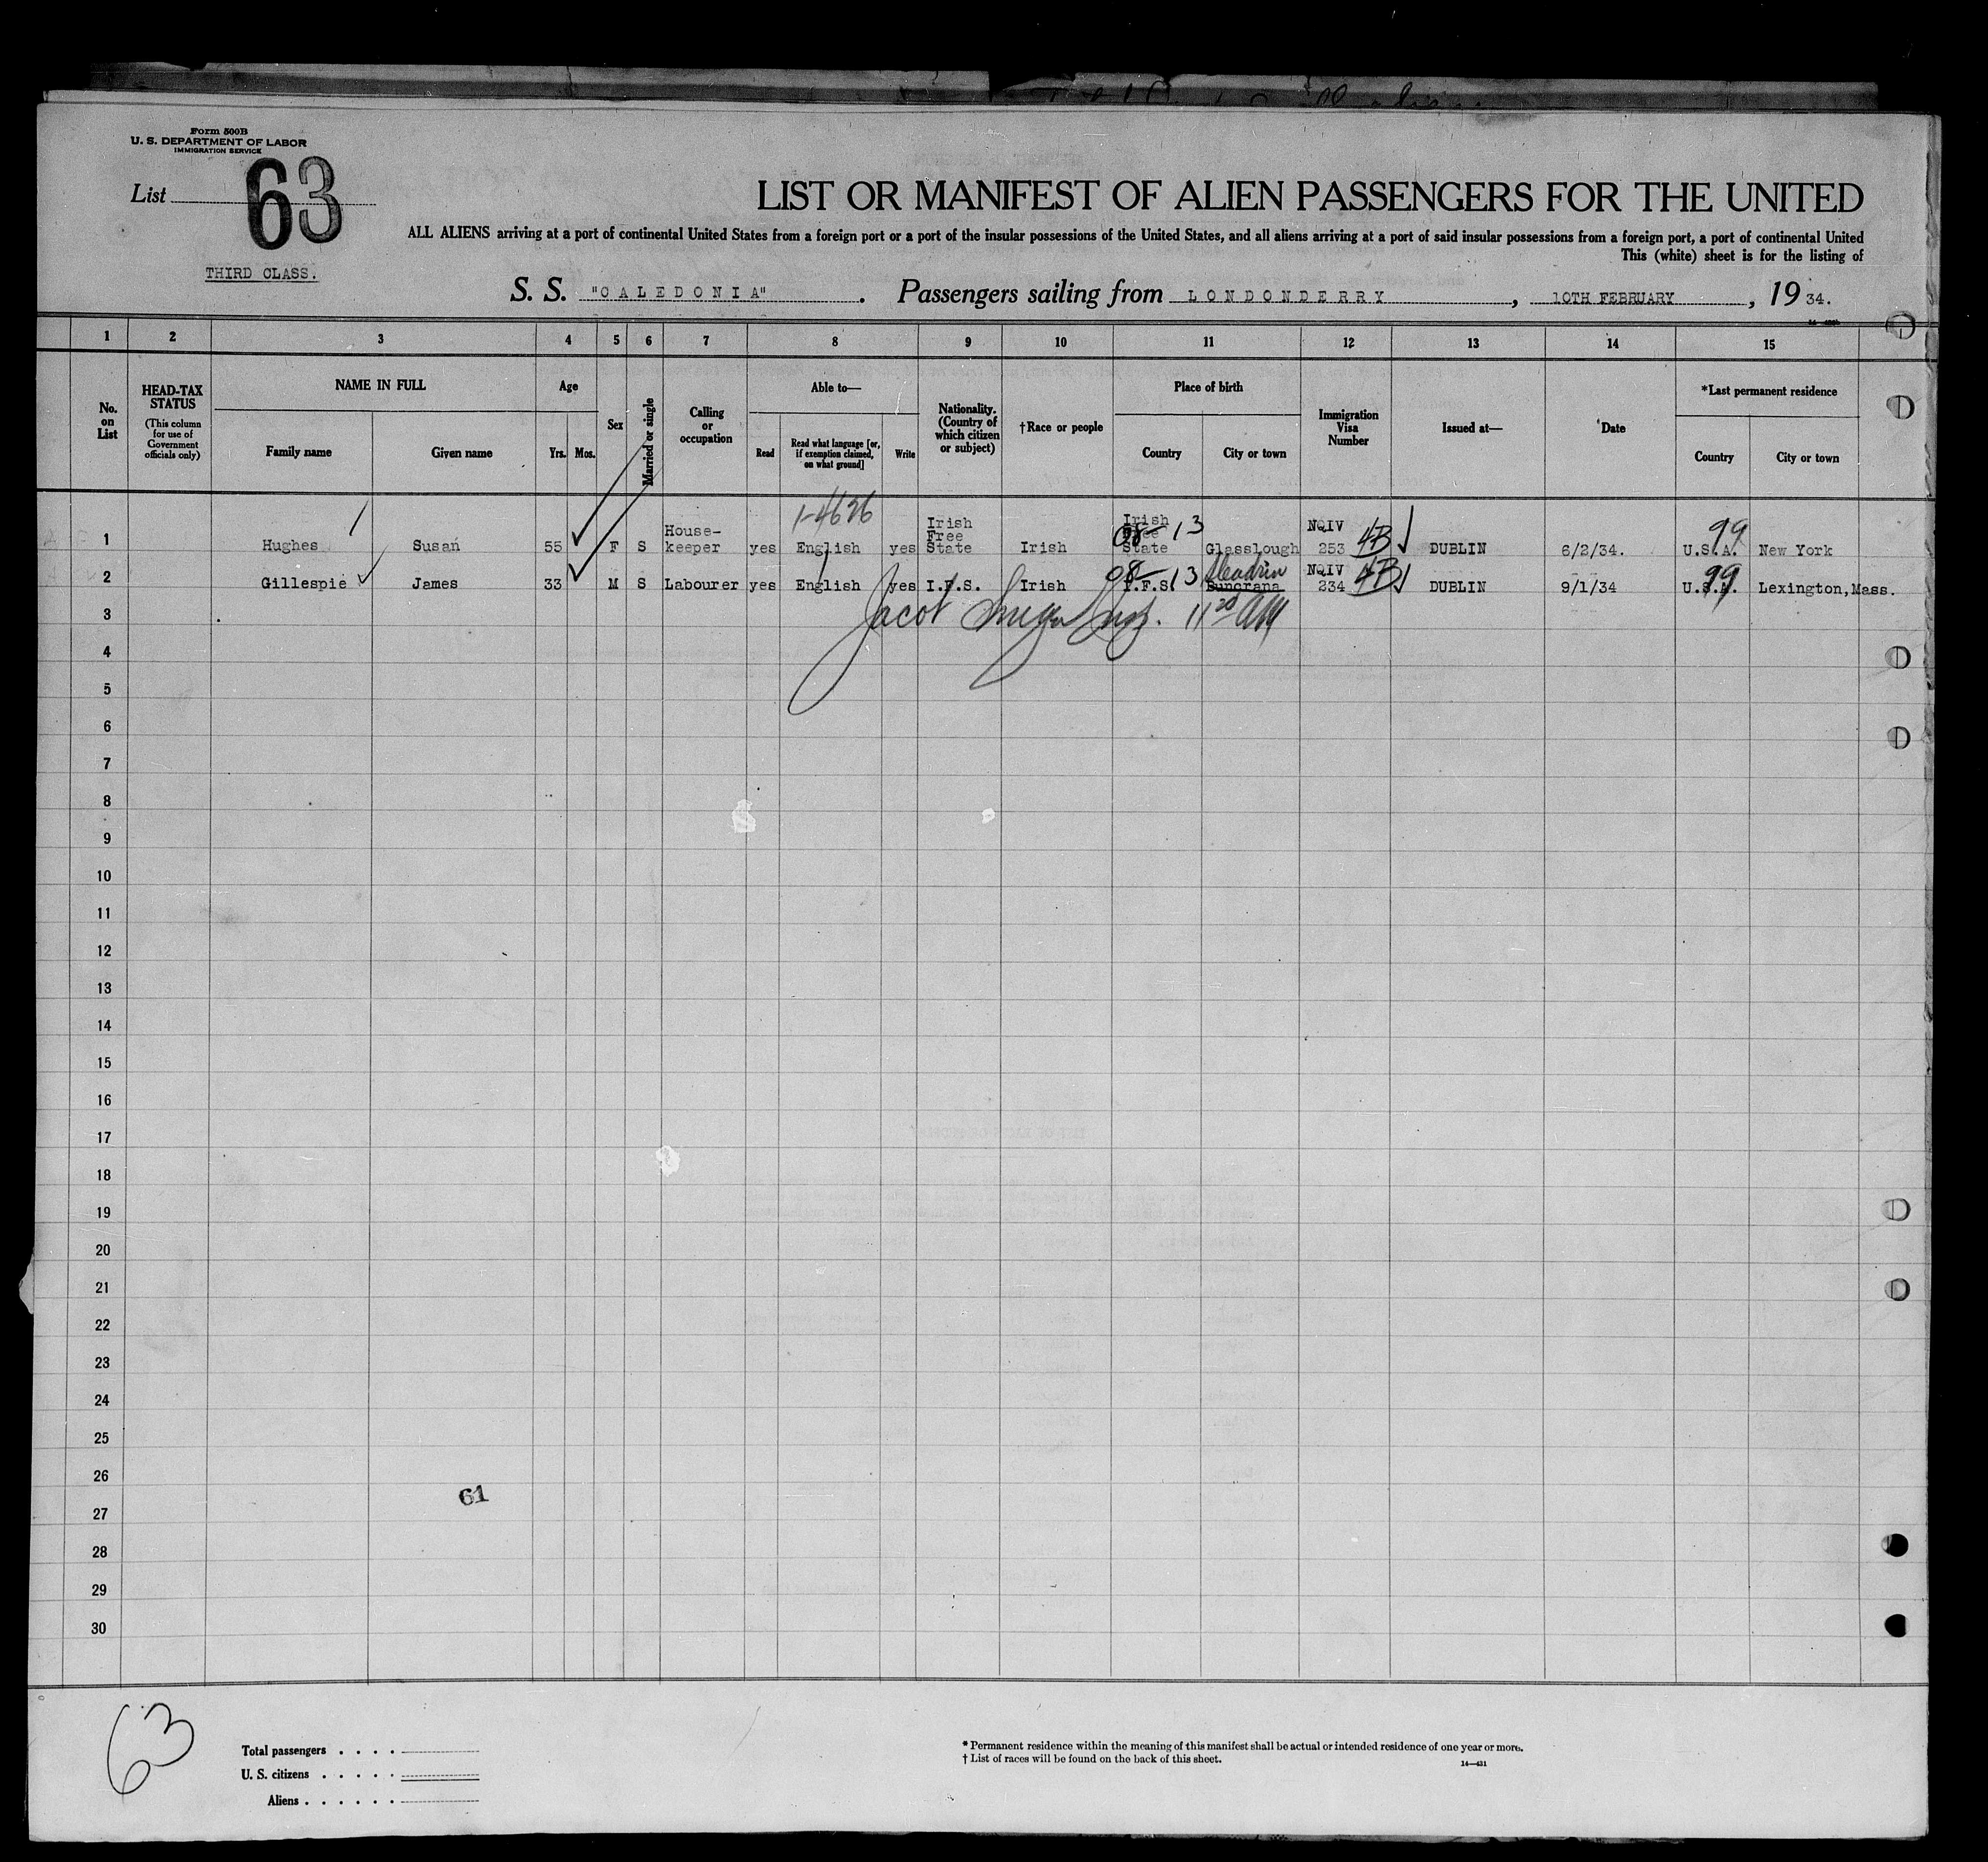 Form 500B
U. S. DEPARTMENT OF LABOR
IMMIGRATION SERVICE
List 63
LIST OR MANIFEST OF ALIEN PASSENGERS FOR THE UNITED
ALL ALIENS arriving at a port of continental United States from a foreign port or a port of the insular possessions of the United States, and all aliens arriving at a port of said insular possessions from a foreign port, a port of continental United
This (white) sheet is for the listing of
THIRD CLASS.
S. S. "CALEDONIA". Passengers sailing from LONDONDERRY, 10TH FEBRUARY, 1934.
1 2 3 4 5 6 7 8 9 10 11 12 13 14 15
No. on List
HEAD-TAX STATUS (This column for use of Government officials only)
NAME IN FULL
Family name Given name
Age
Yrs. Mos.
Sex
Married or single
Calling or occupation
Able to—
Read Read what language [or, if exemption claimed, on what ground] Write
Nationality. (Country of which citizen or subject)
†Race or people
Place of birth
Country City or town
Immigration Visa Number
Issued at—
Date
*Last permanent residence
Country City or town
1-4626
1 Hughes Susan 55 F S House-keeper yes English yes Irish Free State Irish Irish Free State 08-13 Glasslough NQIV 253 4B DUBLIN 6/2/34. U.S.A. 99 New York
2 Gillespie James 33 M S Labourer yes English yes I.F.S. Irish I.F.S. 08-13 Buncrana NQIV 234 4B DUBLIN 9/1/34 U.S.A. 99 Lexington,Mass.
3 Jacob 11 20 AM
4
5
6
7
8
9
10
11
12
13
14
15
16
17
18
19
20
21
22
23
24
25
26
61
27
28
29
30
63
Total passengers . . . .
U. S. citizens . . . . .
Aliens . . . . . .
* Permanent residence within the meaning of this manifest shall be actual or intended residence of one year or more.
† List of races will be found on the back of this sheet.
14—431